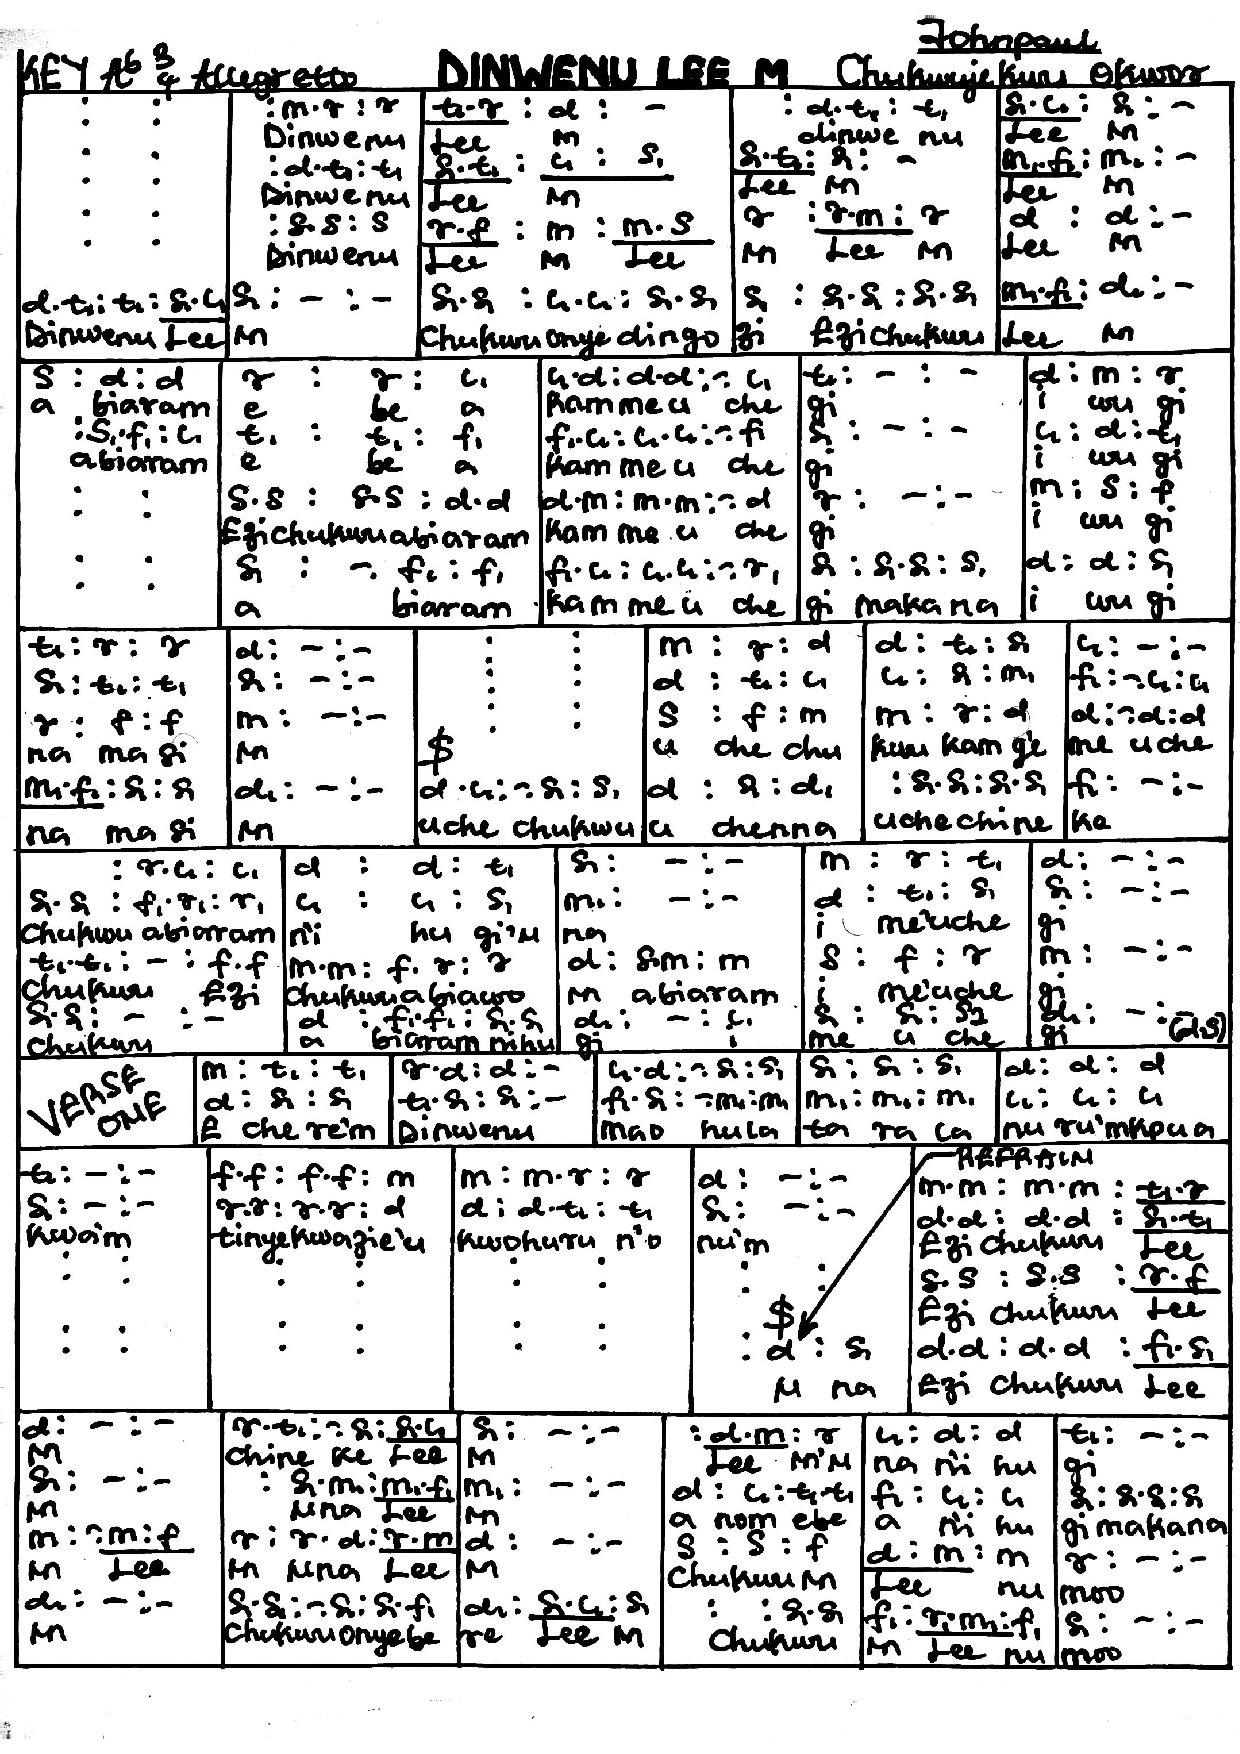 Johnpaul
KEY Ab 3/4 Allegretto DINWENU LEE M Chukwujekwu Okwor
: : | :m.r : r | t₁.r : d : - | : d.t₁ : t₁ | s₁.l₁ : s₁ : -
Dinwenu | Lee M | dinwe nu | Lee M
: : | :d.t₁ : t₁ | s₁.t₁ : l₁ : s₁ | s₁.t₁ : s₁ : - | m₁.f₁ : m₁ : -
Dinwenu | Lee M | Lee M | Lee M
: : | :s.s : s | r.f : m : m.s | r : r.m : r | d : d : -
Dinwenu | Lee M Lee | M Lee M | Lee M
d.t₁ : t₁ : s₁.l₁ | s₁ : - : - | s₁.s₁ : l₁.l₁ : s₁.s₁ | s₁ : s₁.s₁ : s₁.s₁ | m₁.f₁ : d₁ : -
Dinwenu Lee | M | Chukwu onye dingo | zi Ezichukwu | Lee M
s : d : d | r : r : l₁ | l₁.d : d.d : -. l₁ | t₁ : - : - | d : m : r
a biaram | e be a | kam me u che | gi | i wu gi
:s₁.f₁ : l₁ | t₁ : t₁ : f₁ | f₁.l₁ : l₁.l₁ : -. f₁ | s₁ : - : - | l₁ : d : t₁
abiaram | e be a | kam me u che | gi | i wu gi
: : | s.s : s.s : d.d | d.m : m.m : -. d | r : - : - | m : s : f
Ezichukwu abiaram | kam me u che | gi | i wu gi
: : | s₁ : -. f₁ : f₁ | f₁.l₁ : l₁.l₁ : -. r₁ | s₁ : s₁.s₁ : s₁ | d : d : s₁
a biaram | kam me u che | gi makana | i wu gi
t₁ : r : r | d : - : - | : : | m : r : d | d : t₁ : s₁ | l₁ : - : -
s₁ : t₁ : t₁ | s₁ : - : - | : : | d : t₁ : l₁ | l₁ : s₁ : m₁ | f₁ : -.l₁ : l₁
r : f : f | m : - : - | : : | s : f : m | m : r : d | d : -.d : d
na ma si | M | $ | u che chu | kwu kam g'e | me uche
m₁.f₁ : s₁ : s₁ | d₁ : - : - | d.l₁ : -. s₁ : s₁ | d : s₁ : d₁ | : s₁.s₁ : s₁.s₁ | f₁ : - : -
na ma si | M | uche chukwu | u chenna | uche chine | ke
: r.l₁ : l₁ | d : d : t₁ | s₁ : - : - | m : r : t₁ | d : - : -
s₁.s₁ : f₁.r₁ : r₁ | l₁ : l₁ : s₁ | m₁ : - : - | d : t₁ : s₁ | s₁ : - : -
Chukwu abiaram | n'i hu gi'M | na | i me'uche | gi
t₁.t₁ : - : f.f | m.m : f.r : r | d : s.m : m | s : f : r | m : - : -
Chukwu Ezi | Chukwu abiawo | M abiaram | i me'uche | gi
s₁.s₁ : - : - | d : f₁.f₁ : s₁.s₁ | d₁ : - : l₁ | s₁ : s₁ : s₁ | d₁ : - : - (D.S)
Chukwu | a biaram nihu | gi i | me u che | gi
VERSE ONE | m : t₁ : t₁ | r.d : d : - | l₁.d : -. s₁ : s₁ | s₁ : s₁ : s₁ | d : d : d
d : s₁ : s₁ | t₁.s₁ : s₁ : - | f₁.s₁ : -.m₁ : m₁ | m₁ : m₁ : m₁ | l₁ : l₁ : l₁
E che re'm | Dinwenu | mao hula | ta ra ca | nu ru'mkpu a
REFRAIN
t₁ : - : - | f.f : f.f : m | m : m.r : r | d : - : - | m.m : m.m : t₁.r
s₁ : - : - | r.r : r.r : d | d : d.t₁ : t₁ | s₁ : - : - | d.d : d.d : s₁.t₁
kwa'm | tinyekwazie'u | kwohuru n'o | nu'm | Ezi Chukwu Lee
: : | : : | : : | : : | s.s : s.s : r.f
$ | Ezi chukwu Lee
: : | : : | : : | : d : s₁ | d.d : d.d : f₁.s₁
M na | Ezi Chukwu Lee
d : - : - | r.t₁ : -. s₁ : s₁.l₁ | s₁ : - : - | : d.m : r | l₁ : d : d | t₁ : - : -
M | Chine ke Lee | M | Lee M'M | na n'i hu | gi
s₁ : - : - | : s₁.m₁ : m₁.f₁ | m₁ : - : - | d : l₁ : t₁.t₁ | f₁ : l₁ : l₁ | s₁ : s₁.s₁ : s₁
M | Mna Lee | M | a nom ebe | a n'i hu | gi makana
m : -.m : f | r : r.d : r.m | d : - : - | s : s : f | d : m : m | r : - : -
M Lee | M Mna Lee | M | Chukwu M | Lee nu | moo
d₁ : - : - | s₁.s₁ : -. s₁ : s₁.f₁ | d₁ : s₁.l₁ : s₁ | : : s₁.s₁ | f₁ : r₁.m₁ : f₁ | s₁ : - : -
M | Chukwu onyebe | re Lee M | Chukwu | M Lee nu | moo